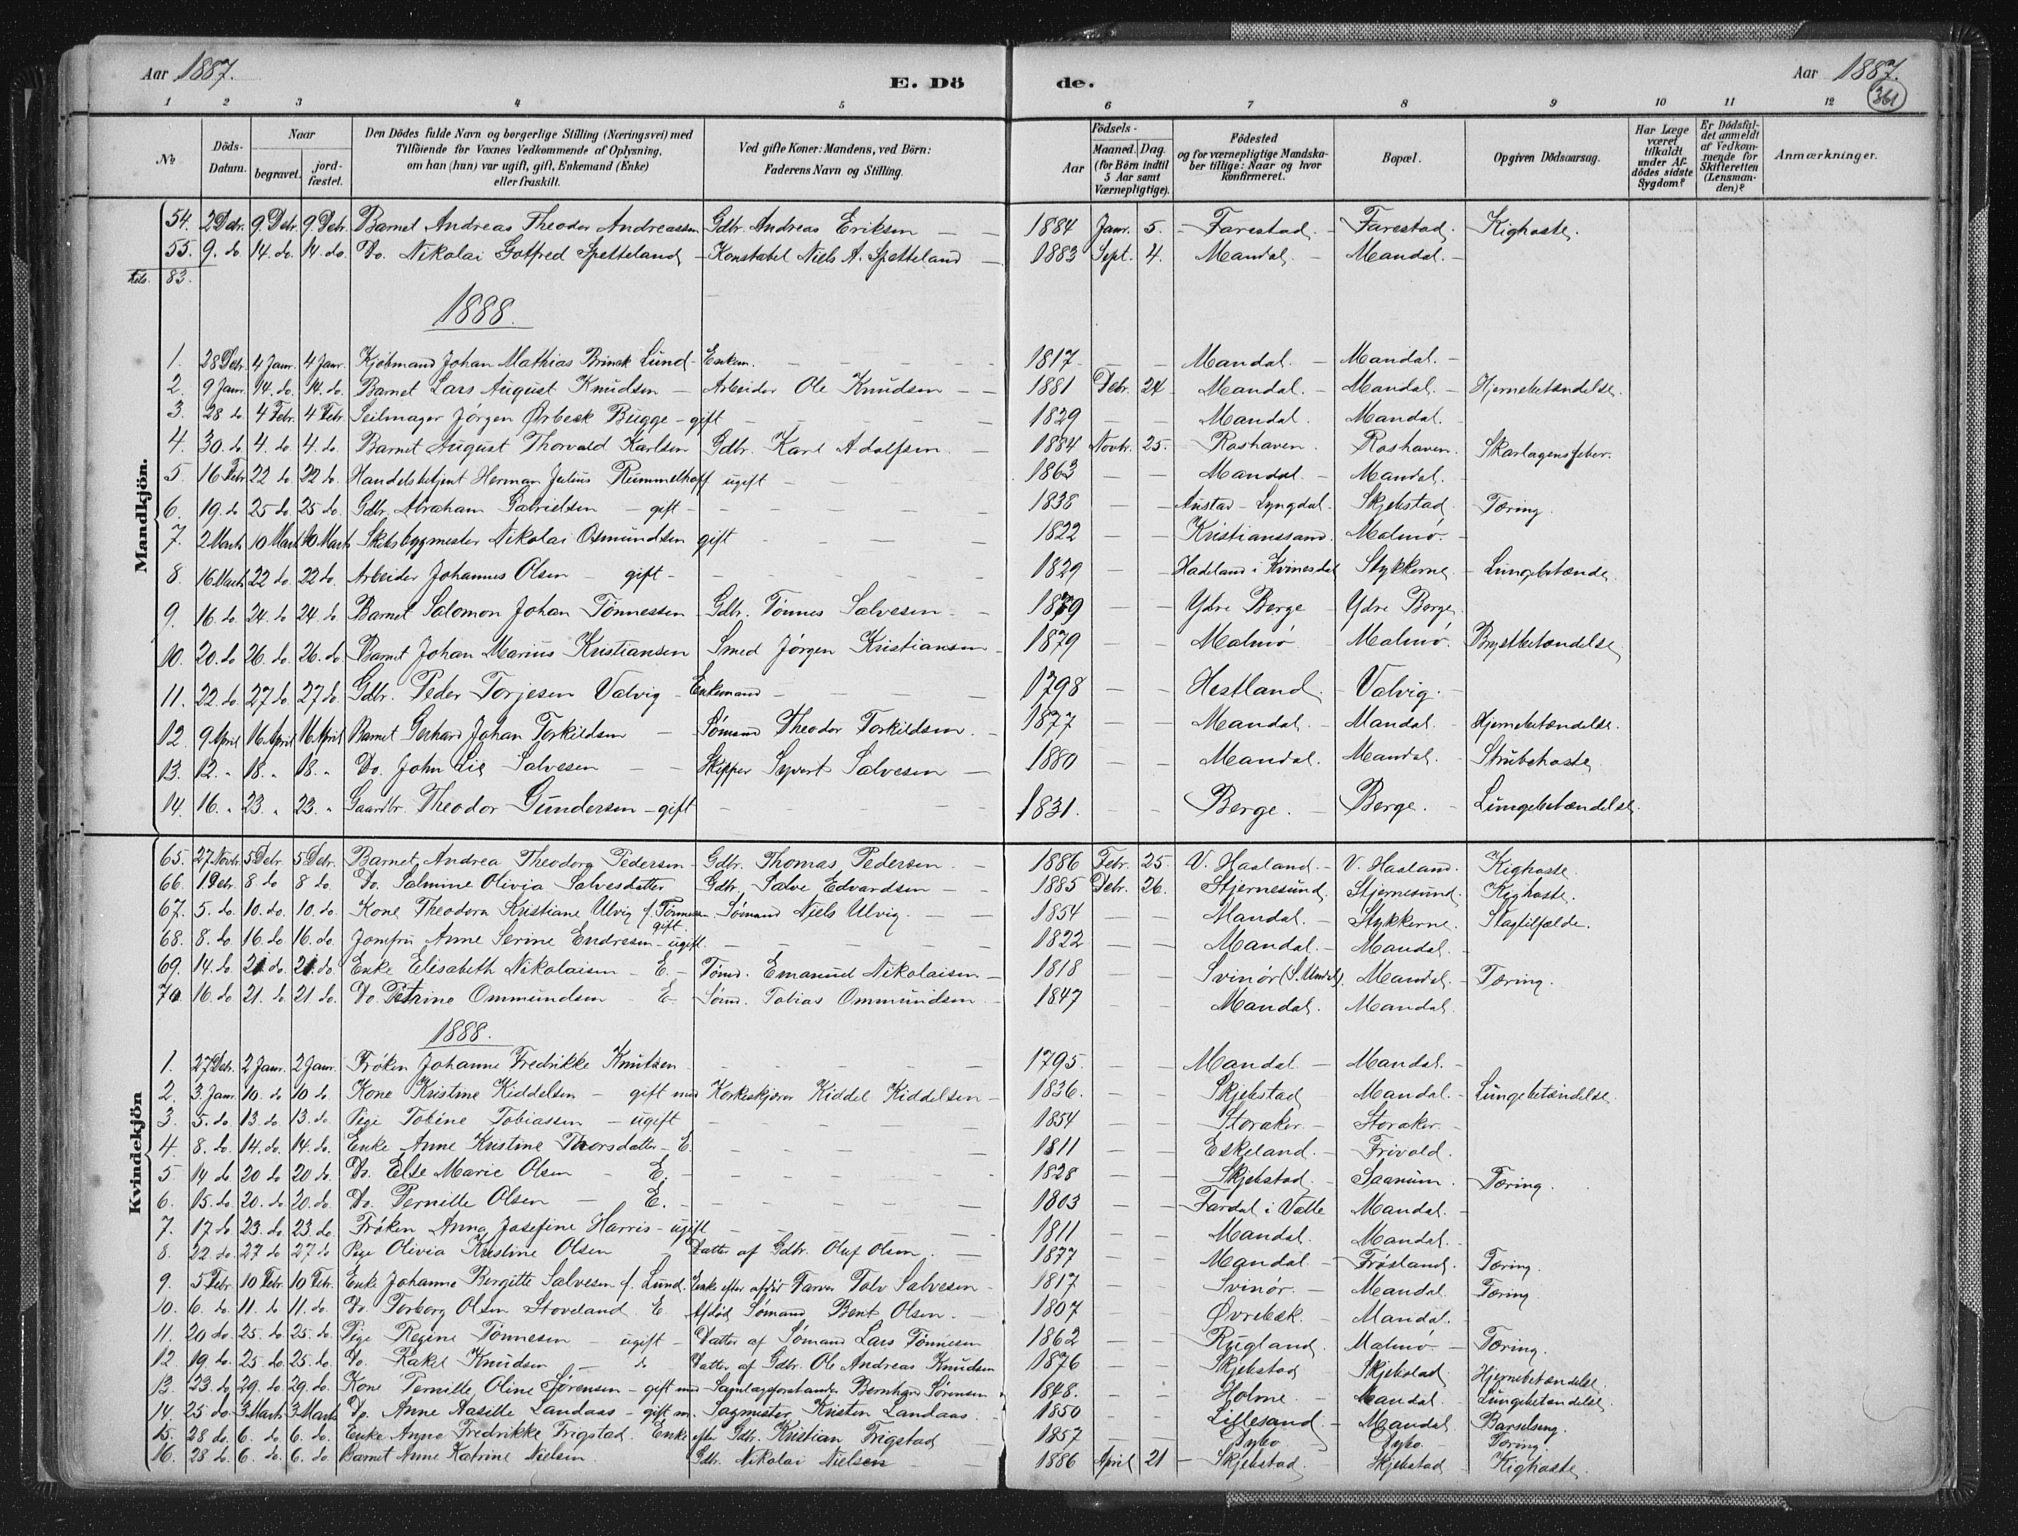 Aar 1887. E. Dö de. Aar 1887.
361
1 2 3 4 5 6 7 8 9 10 11 12
No Döds-Datum. Naar begravet. jordfæstet. Den Dödes fulde Navn og borgerlige Stilling (Næringsvei) med Tilföiende for Voxnes Vedkommende af Oplysning, om han (hun) var ugift, gift, Enkemand (Enke) eller fraskilt. Ved gifte Koner: Mandens, ved Börn: Faderens Navn og Stilling. Födsels- Aar Maaned. Dag. (for Börn indtil 5 Aar samt Værnepligtige). Födested og for værnepligtige Mandskaber tillige: Naar og hvor konfirmeret. Bopæl. Opgiven Dödsaarsag. Har Læge været tilkaldt under Afdödes sidste Sygdom? Er Dödsfaldet anmeldt af Vedkommende for Skifteretten (Lensmanden)? Anmærkninger.
Mandkjön.
54. 2 Debr. 9 Debr. 9 Debr. Barnet Andreas Theodor Andreassen Gdbr. Andreas Eriksen 1884 Janr. 5. Farestad Farestad Kighoste
55. 9. do 14. do. 14. do. Do. Nikolai Gotfred Spetteland Konstabel Niels A. Spetteland 1883 Sept. 4. Mandal Mandal
83.
1888.
1. 28 Debr. 4 Janr. 4 Janr. Kjøbmand Johan Mathias Brinck Lund Enkem. 1817 Mandal. Mandal.
2. 9 Janr. 14. do 14. do. Barnet Lars August Knudsen Arbeider Ole Knudsen 1881 Debr. 24 Mandal. Mandal. Hjernebetændelse.
3. 28 do. 4 Febr. 4 Febr. Seilmager Jørgen Ørbeck Bugge - gift 1829 Mandal. Mandal.
4. 30. do 4. do. 4. do. Barnet August Thorvald Karlsen Gdbr. Karl Adolfsen 1884 Novbr. 25. Roshaven. Roshaven. Skarlagensfeber.
5. 16 Febr. 22 do 22 do. Handelsbetjent Herman Julius Rummelhoff ugift 1863 Mandal Mandal.
6. 19. do 25 do. 25 do. Gdbr. Abraham Gabrielsen - gift 1838 Austad - Lyngdal. Skjebstad. Tæring.
7. 2 Marts 10 Marts 10 Marts Skibsbygmester Nikolai Osmundsen gift 1822 Kristianssand. Malmø.
8. 16 Marts 22 do. 22 do. Arbeider Johannes Olsen - gift 1829 Hadeland i Kvinesdal Stykkerne Lungebetænde.
9. 16. do. 24. do. 24. do. Barnet Salomon Johan Tønnessen Gdbr. Tønnes Salvesen 1879 Ydre Berge Ydre Berge.
10. 20. do 26. do. 26. do. Barnet Johan Marius Kristiansen Smed Jørgen Kristiansen 1879 Malmø Malmø. Brystbetændelse.
11. 22. do. 27 do. 27 do. Gdbr. Peder Torjesen Valvig - Enkemand 1798 Hestland. Valvig.
12. 9 April 16 April 16 April Barnet Gerhard Johan Torkildsen Sømand Theodor Torkildsen. 1877 Mandal. Mandal Hjernebetændelse.
13. 12. " 18. " 18. " Do. John Lie Salvesen Skipper Syvert Salvesen 1880 Mandal. Mandal. Strubehoste
14. 16. " 23 " 23. " Gaardbr. Theodor Gundersen - gift 1831. Berge. Berge. Lungebetændelse.
Kvindekjön
65. 27 Novbr. 5 Debr. 5 Debr. Barnet Andrea Theodora Pedersen Gdbr. Thomas Pedersen 1886 Febr. 25 V. Haaland. V. Haaland. Kighoste.
66. 1 Debr. 8 do 8 do. Do. Salmine Olivia Salvesdatter Gdbr. Salve Edvardsen 1885 Debr. 26. Stjernesund. Stjernesund. Kighoste.
67. 5. do. 10. do. 10. do. Kone Theodora Kristiane Ulvig f. Tønnessen gift. Sømand Niels Ulvig. 1854 Mandal. Stykkerne. Slagtilfælde.
68. 8. do. 16. do 16. do. Jomfru Anne Serine Endresen - ugift 1822 Mandal. Mandal.
69. 14. do. 21 do. 21 do. Enke Elisabeth Nikolaisen - E. Tømd. Emanuel Nikolaisen 1818 Svinør (S. Undal). Mandal. Tæring.
70 16. do. 21. do 21 do. Do. Petrine Ommundsen - E Sømd. Tobias Ommundsen 1847 Mandal. Mandal.
1888.
1. 27 Debr. 2 Janr. 2 Janr. Frøken Johanne Fredrikke Knutzen. 1795. Mandal Mandal.
2. 3. Janr. 10. do 10 do. Kone Kristine Kiddelsen - gift med Korkeskjærer Kiddel Kiddelsen 1836. Skjebstad Mandal. Lungebetændelse.
3. 5. do 13. do. 13. do. Pige Tobine Tobiassen - ugift 1854 Storaker. Storaker.
4. 8. do. 14. do. 14. do. Enke Anne Kristine Thorsdatter - E. 1811 Eskeland. Frivold.
5 14 do 20 do 20 do. Do. Else Marie Olsen - E. 1828 Skjebstad. Saanum. Tæring.
6. 15. do. 20. do. 20. do. Do. Pernille Olsen - E. 1803 Fardal i Valle Mandal.
7. 17 do 23. do. 23. do. Frøken Anna Josefine Harris - ugift 1811 Mandal. Mandal.
8. 22 do. 27 do 27. do. Pige Olivia Kristine Olsen Datter af Gdbr. Oluf Olsen. 1877 Mandal. Frøsland. Tæring.
9. 5 Febr. 10 Febr. 10 Febr. Enke Johanne Bergitte Salvesen f. Lund. Enke efter afdød Farver Tolv Salvesen 1817 Svinør. Mandal. Tæring
10. 6. do. 11. do. 11. do. Do. Torborg Olsen Stoveland. E. Afdød Sømand Bent Olsen. 1807 Øvrebøk. Mandal.
11. 20 do. 25. do. 25. do. Pige Regine Tønnesen - ugift Datter af Sømand Lars Tønnesen 1862 Rugland. Malmø. Tæring.
12 19. do. 25. do. 25. do. Do. Rakel Knudsen - do Datter af Gdbr. Ole Andreas Knudsen 1876 Skjebstad Skjebstad Hjernebetændelse
13. 23. do. 29. do. 29. do. Kone Pernille Oline Sørensen - gift med Samlagsforstander Bernhard Sørensen 1848. Holme. Mandal Lungebetændelse.
14. 25 do. 3 Marts 3 Marts Do. Anne Aasille Landaas - gift m. Sagmester Kristen Landaas. 1850 Lillesand. Mandal Barselseng.
15. 28 do. 6. do. 6. do. Enke Anne Fredrikke Frigstad. Enke efter Gdbr. Kristian Frigstad 1857 Dybo Dybo. Tæring.
16. 28 do. 6. do 6. do. Barnet Anne Katrine Nielsen. Gdbr. Nikolai Nielsen 1886 April 21 Skjebstad. Skjebstad Kighoste.